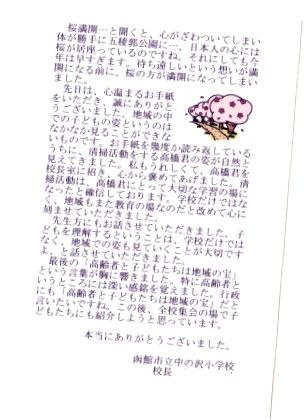 桜満開…と聞くと、心がざわついてしまい
体が勝手に五稜郭公園に…。日本人の心には
桜が居座っているのですね。それにしても今
年は早すぎます。待ち遠しいという想いが満
開になる前に、桜の方が満開になってしまい
ました。
先日は、心温まるお手紙
をいただき、誠にありがと
うございました。地域の中
での子どもの姿というのは
なかなか見ることができな
いものです。お手紙を幾度か読み返している
うちに、清掃活動をする高橋君の姿が自然と
見えてきました。私もうれしくて、高橋君を
校長室に招き、心から褒めてあげました。清
掃活動は、高橋君にとって大切な学習の場に
なったと確信しております。学校だけではな
く、地域もまた教育の場なのだと改めて心に
刻ませていただきました。
先生方にもお話させていただきました。子
どもを理解するということは、学校だけでは
なく、地域での姿も見ていく事が大切です
よ、と話させていただきました。
最後の「高齢者と子どもたちは地域の宝」
という言葉が胸に響きました。特に高齢者と
いうところには深い感銘を覚えました。行政
にも「高齢者と子どもたちは地域の宝」だと
言いたいですね。この後、全校集会の場で子
どもたちにも紹介しようと思っています。
本当にありがとうございました。
函館市立中の沢小学校
校長